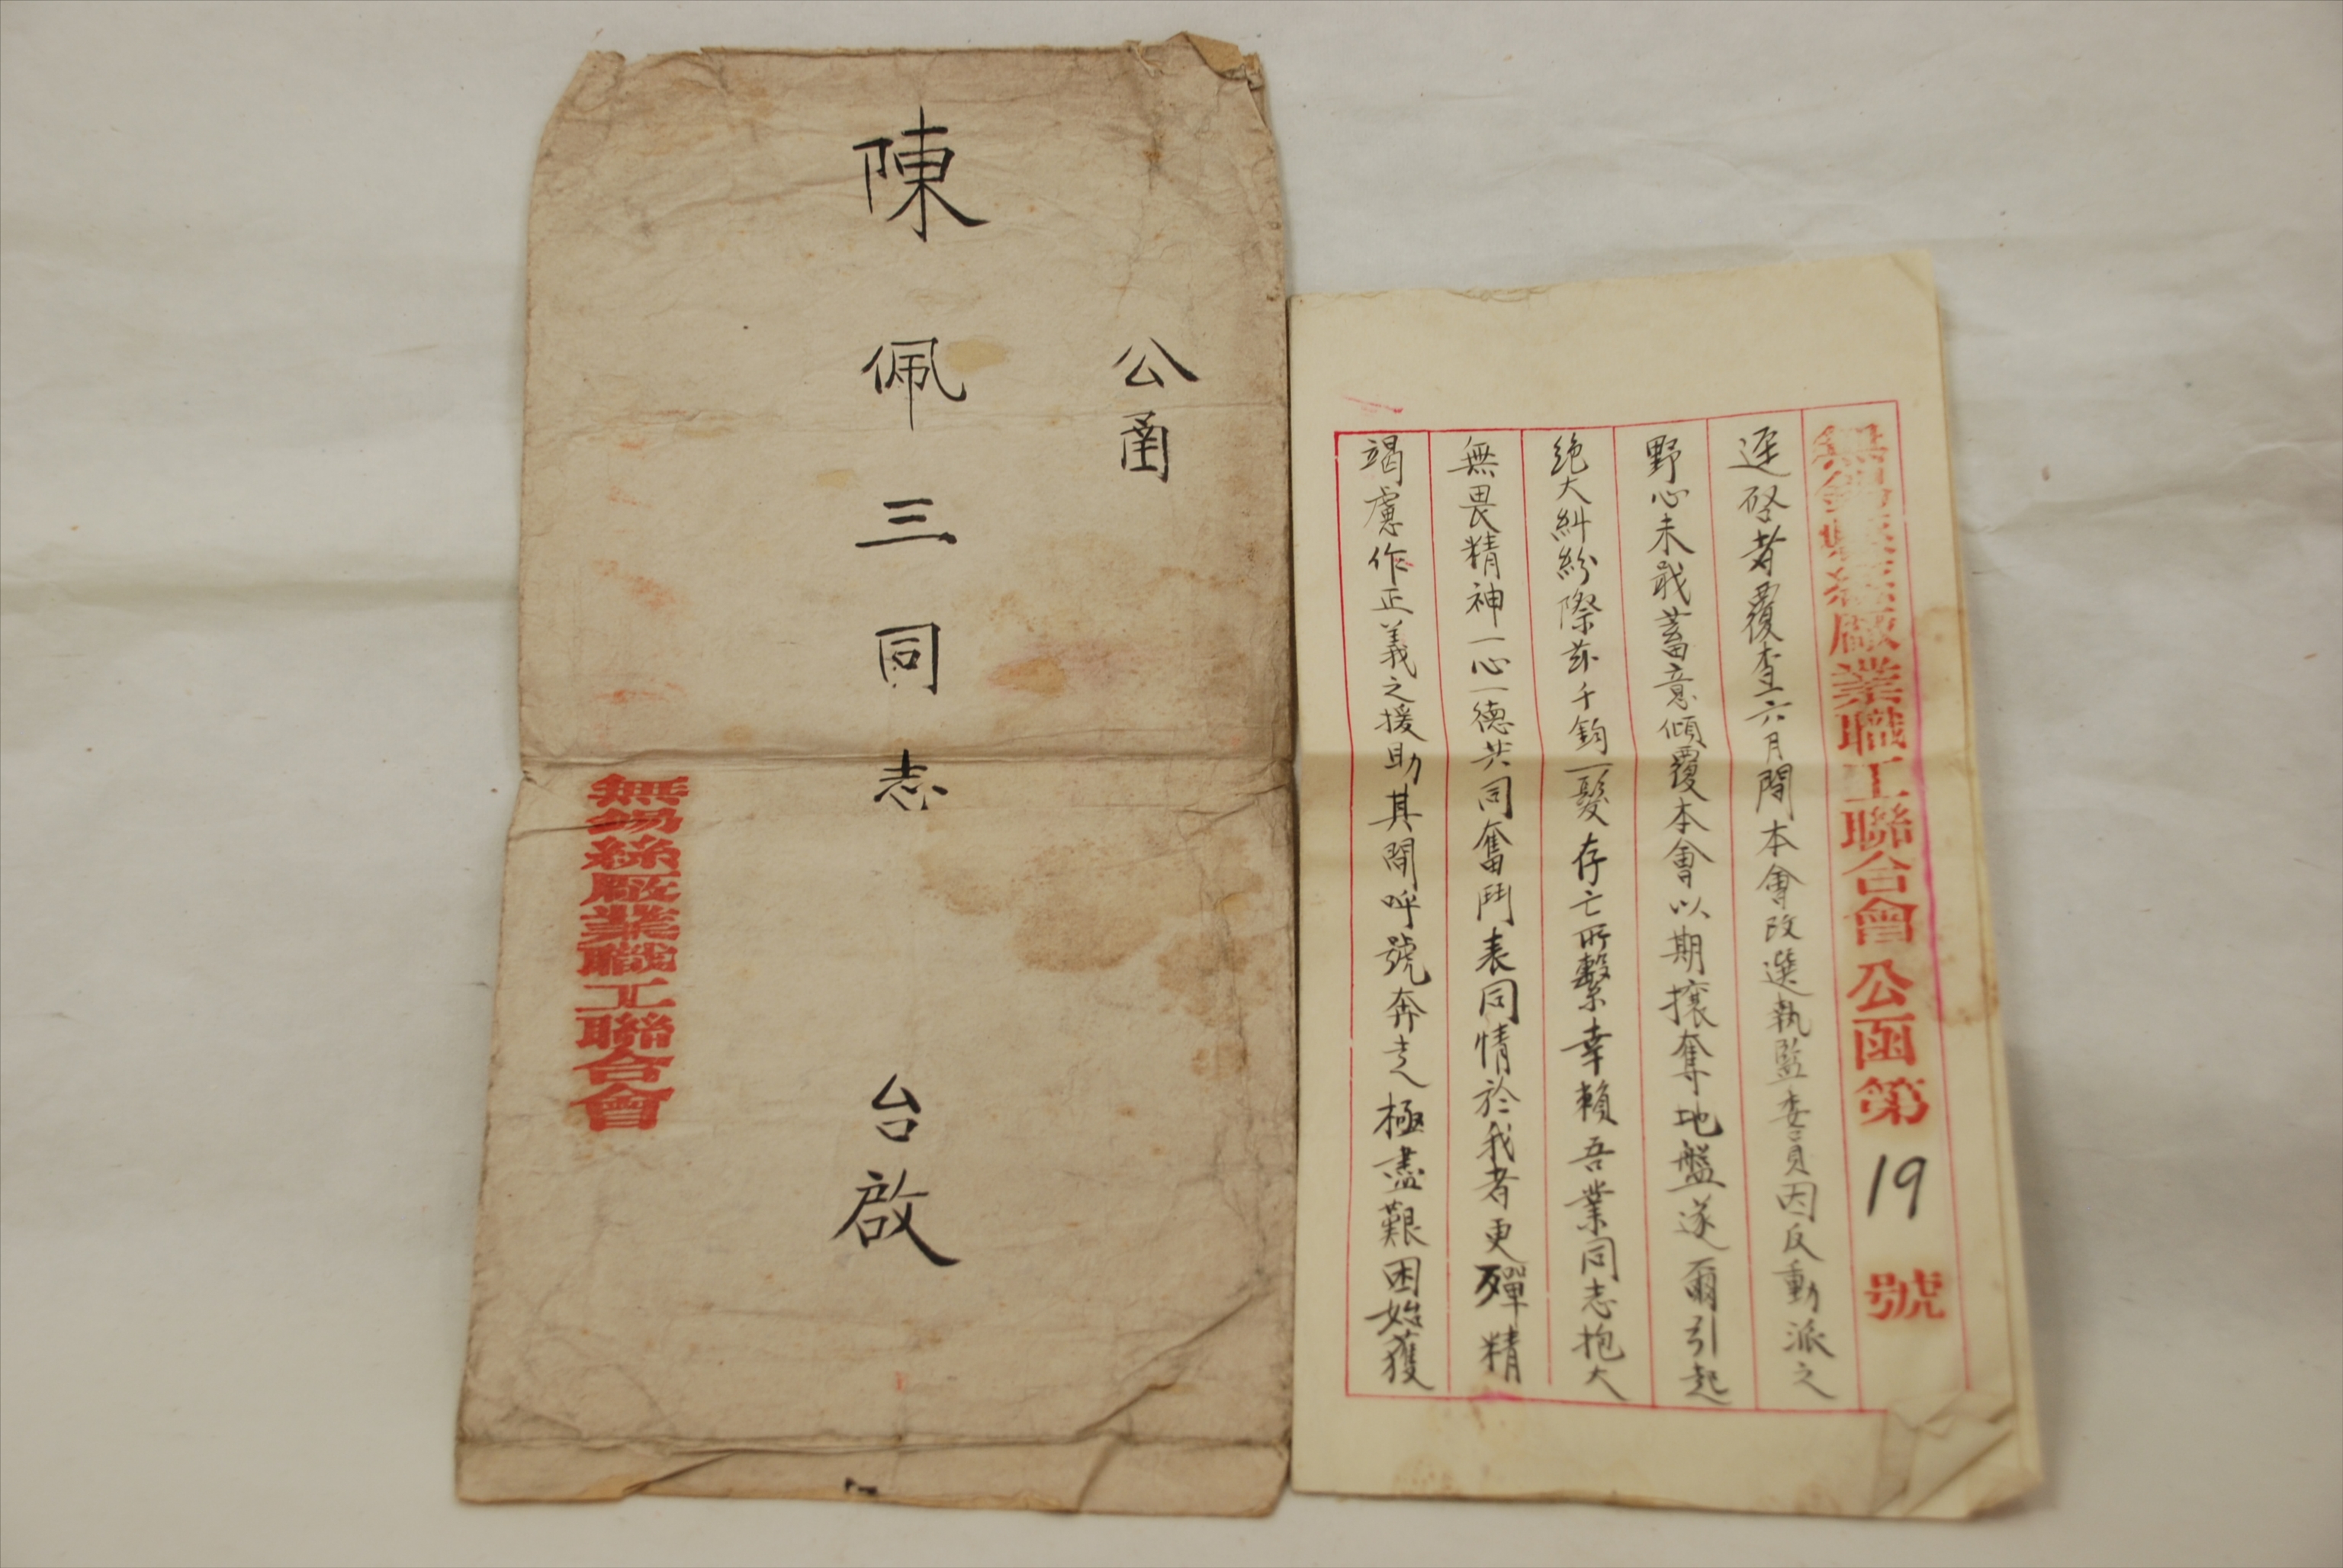 公函
陳佩三同志 台啟
無錫絲廠業職工聯合會
無錫縣絲廠業職工聯合會公函第19號
逕啓者覆查六月間本會改選執監委員因反動派之
野心未戢蓄意傾覆本會以期攘奪地盤遂爾引起
絶大糾紛際茲千鈞一髮存亡所繫幸賴吾業同志抱大
無畏精神一心一德共同奮鬥表同情於我者更殫精
竭慮作正義之援助其間呼號奔走極盡艱困始獲